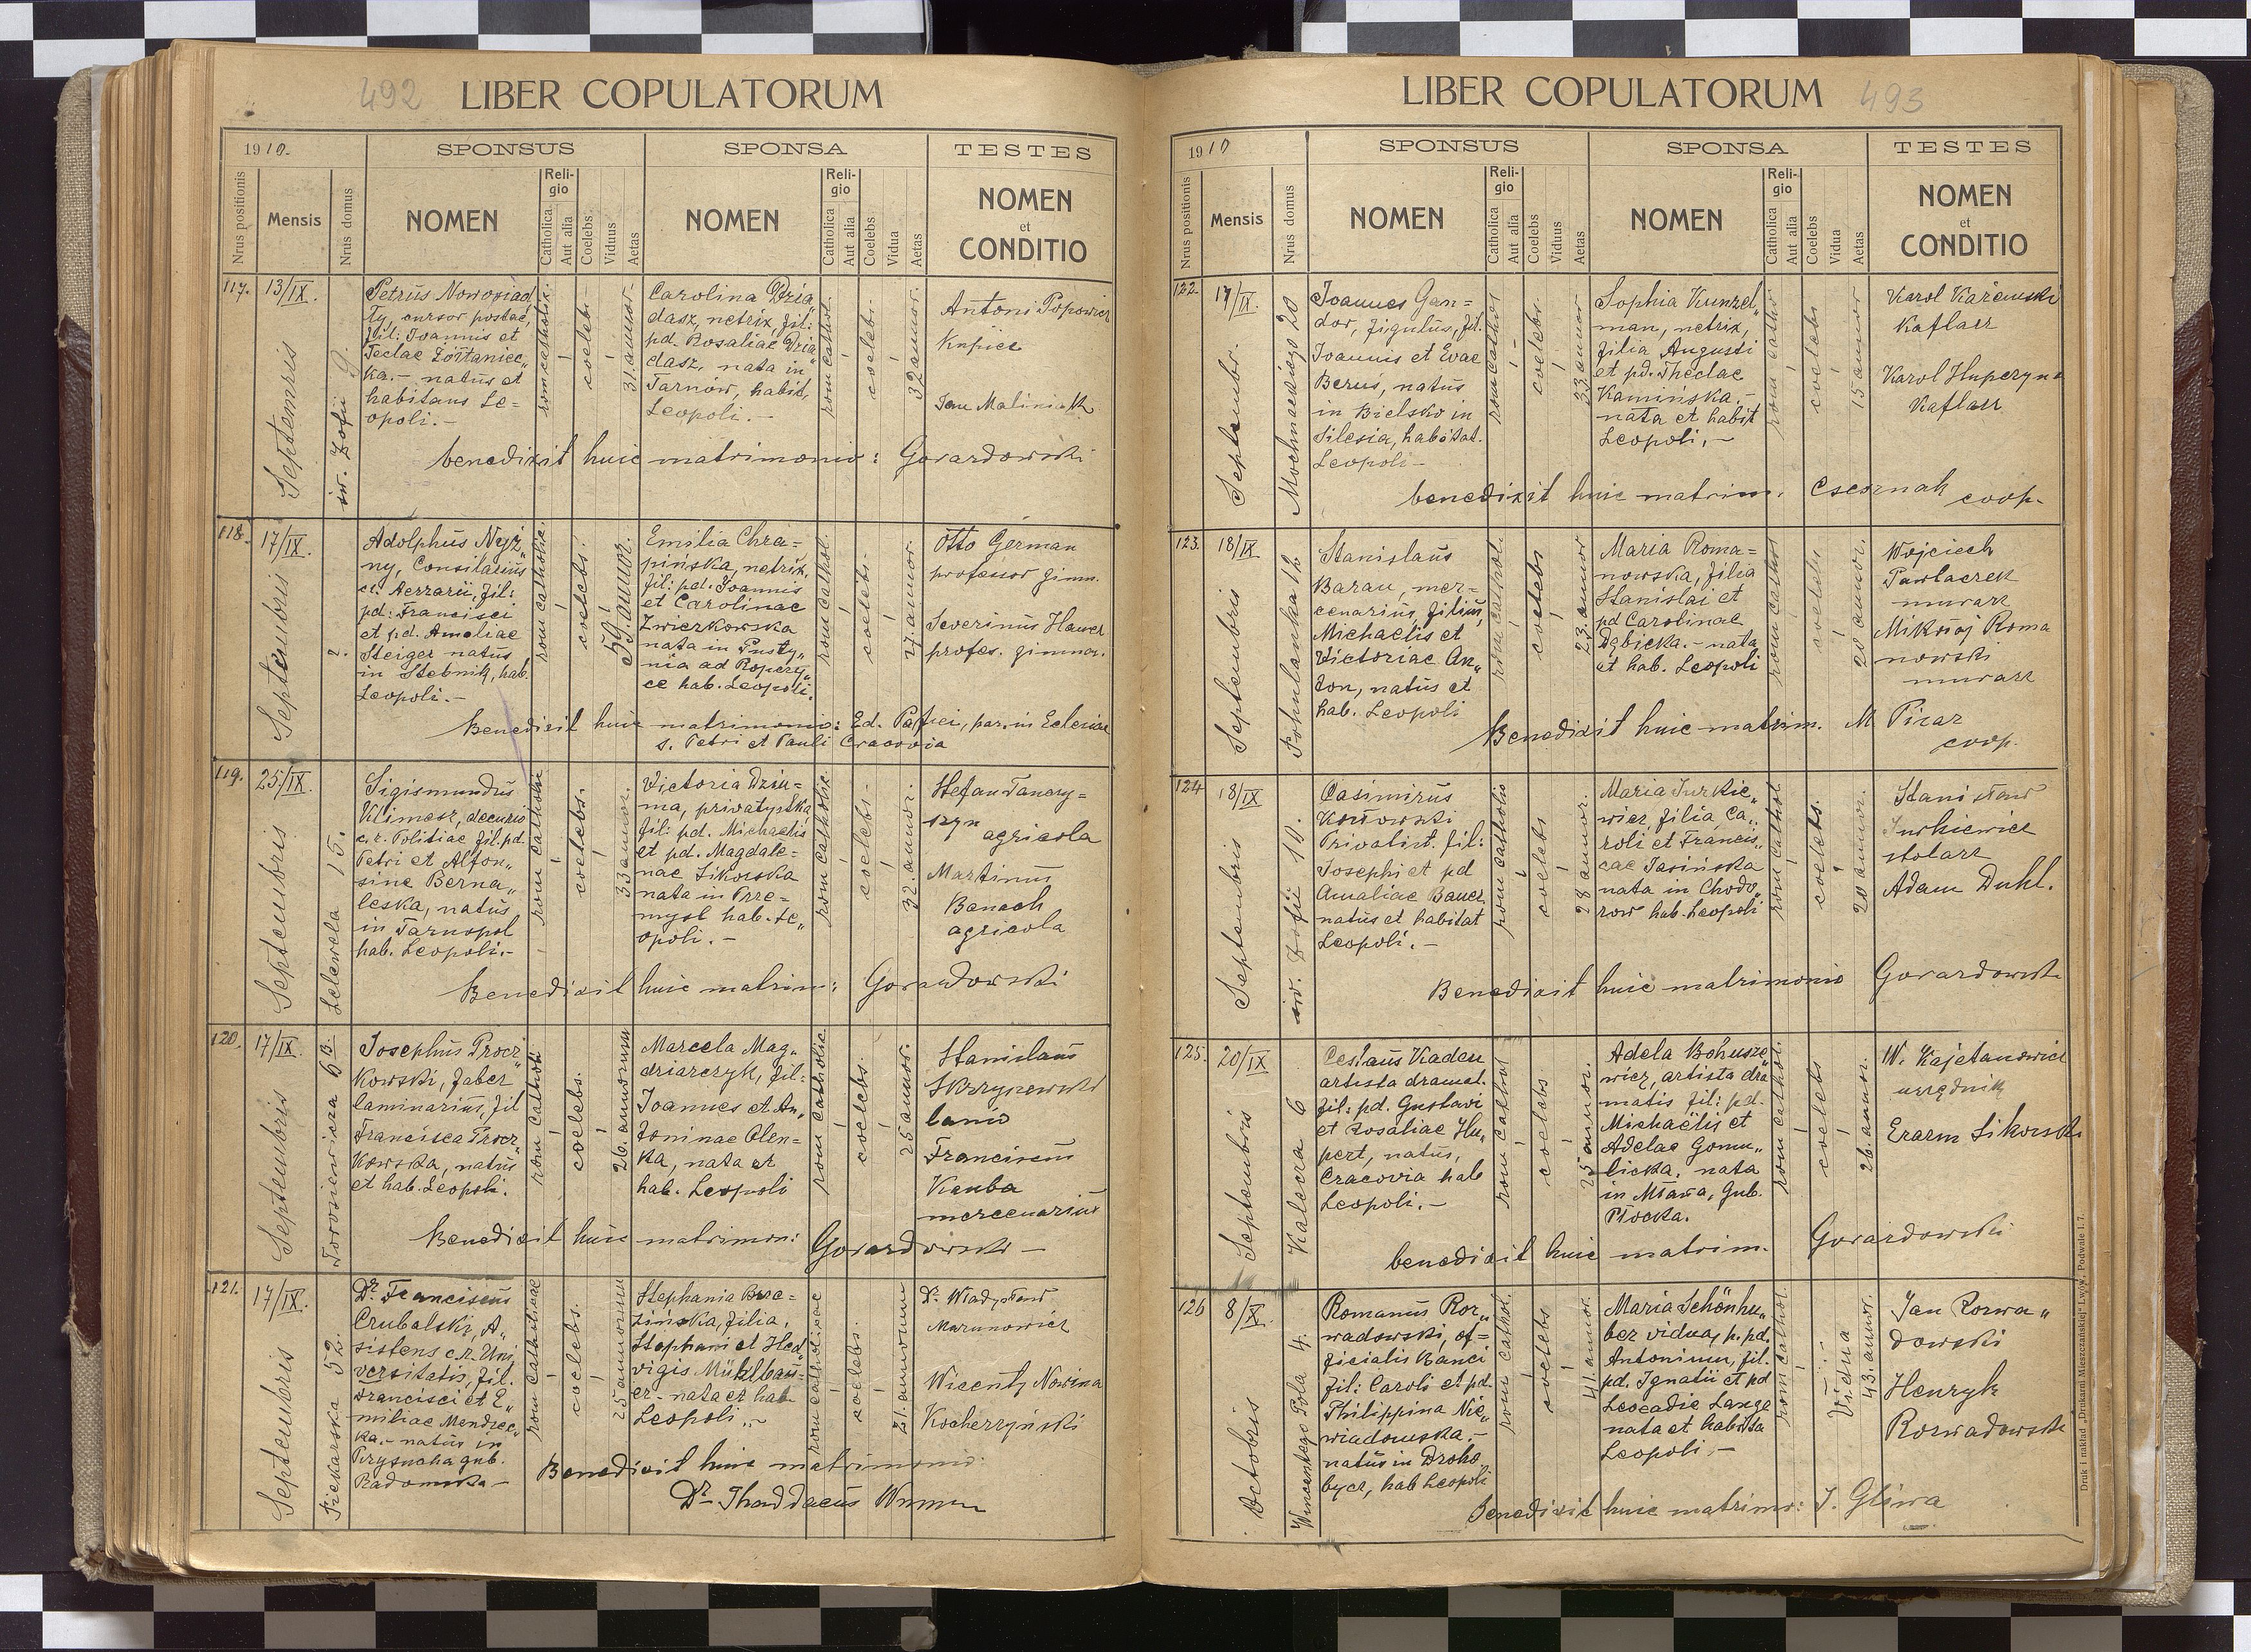 492 LIBER COPULATORUM
1910.
SPONSUS SPONSA TESTES
Nrus positionis Mensis Nrus domus NOMEN Religio Catholica Aut alia Coelebs Viduus Aetas NOMEN Religio Catholica Aut alia Coelebs Vidua Aetas NOMEN et CONDITIO
117. 13/IX. Septembris św. Zofii 9.
Petrus Nowosiad
ty, cursor postae,
fil: Joannis et
Teclae Zołtaniec„
ka.- natus et
habitans Le=
opoli.-
rom. cathol. coelebs 31. annor.
Carolina Dzia„
dasz, netrix, fil:
pd. Rosaliae Dzia„
dasz, nata in
Tarnow, habit,
Leopoli.-
rom. cathol. coelebs. 32 annor.
Antoni Popowicz
Kupiec
Jan Maliniak
benedixit huic matrimonio: Gorazdowski
118. 17/IX. Septembris 2.
Adolphus Nyż„
ny, Consiliarius
cr. Aerrarii, fil:
pd: Francisci
et pd. Amaliae
Steiger natus
in Stebnik, hab.
Leopoli.-
rom catholic. coelebs. 59. annor.
Emilia Chra=
pińska, netrix,
fil: pd. Joannis
et Carolinae
Zwierkowska
nata in Pusty„
nia ad Ropczy„
ce hab. Leopoli.
rom cathol. coelebs. 47. annor.
Otto German
professor gimn.
Severinus Hamer
profes. gimna.
Benedixit huic matrimonio: Ed. par. in Eclesiae
s. Petri et Pauli Cracovia
119. 25/IX. Septembris Lelewela 15.
Sigismundus
Klimesz, decurio
c. r. Politiae fil. pd.
Petri et Alfon„
sine Berna„
leska, natus
in Tarnopol
hab. Leopoli.-
rom catholic coelebs. 33 annor.
Victoria Dziu=
ma, privatystka
fil: pd. Michaelis
et pd. Magdale=
nae Sikorska
nata in Prze=
mysl hab. Le„
opoli.-
rom catholic. coelebs. 32. annor.
Stefan Tanczy=
szyn agricola
Martinus
Banach
agricola
Benedixit huic matrim: Gorazdowski
120. 17/IX. Septembris Torosiewicza
Josephus Procz„
Kowski, faber
laminarius, fil
Francisca Procz„
Kowska, natus
et hab. Leopoli.
rom cathol. coelebs. 26. annorum
Marcela Mag„
driarczyk, fil:
Joannes et An„
toninae Olen=
ka, nata et
hab. Leopoli
rom catholic coelebs. 25 annor.
Stanislaus
Skrzynewski
lanio
Franciscus
Kauba
mercenarius
Benedixit huic matrimon: Gorazdowski -
121. 17/IX. Septembris Piekarska 52.
Dr. Franciscus
Czubalski, A„
sistens c.r. Uni
versitatis, fil.
Francisci et E„
miliae Mendrec„
ka.- natus in
Przysucha gub.
Radomska -
rom catholicae coelebs. 25 annorum
Stephania Brze=
zińska, filia,
Stephani et Hed„
vigis Mühlbau„
er - nata et hab
Leopoli.-
rom catholicae coelebs. 21. annorum
Dr. Władysław
Marunowicz
Wicenty Nowina
Kocherzyński
Benedixit huic matrimonio:
Dr. Thaddaeus
LIBER COPULATORUM 493
1910
SPONSUS SPONSA TESTES
Nrus positionis Mensis Nrus domus NOMEN Religio Catholica Aut alia Coelebs Viduus Aetas NOMEN Religio Catholica Aut alia Coelebs Vidua Aetas NOMEN et CONDITIO
122. 17/IX. Septembr. Mochnackiego 20
Joannes Gan=
dor, figulus, fil.
Joannis et Evae
Berus, natus
in Bielsko in
Silesia, habitat.
Leopoli-
rom cathol coelebs. 33 annor
Sophia Kunzel„
man, netrix,
filia Augusti
et pd. Theclae
Kamińska.-
nata et habit
Leopoli.-
rom cathol coelebs 15 annor
Karol
Kaflarz
Karol
Kaflarz
benedixit huic matrim. Csesznak coop.
123. 18/IX Septembris Pohulanka 12
Stanislaus
Baran, mer=
cenarius, filius,
Michaelis et
Victoriae An„
ton, natus et
hab. Leopoli
rom cathol. coelebs 23. annor
Maria Roma=
nowska, filia
Stanislai et
pd Carolinae
Dębicka.- nata
et hab. Leopoli
rom cathol coelebs 20 annor.
Wojciech
Pawłaczek
murarz
Mikołaj Roma
nowski
murarz
Benedixit huic matrim. M Picaz
coop.
124 18/IX Septembris św. Zofii 10.
Casimirus
Kotowski
Privatist. fil:
Josephi et pd
Amaliae Bauer
natus et habitat
Leopoli.-
rom catholic coelebs 28 annor.
Maria Jurkie„
wicz, filia Ca„
roli et Francis„
cae Jasińska
nata in Chodo„
row hab. Leopoli
rom cathol coelebs. 20 annor.
Stanisław
Jurkiewicz
stolarz
Adam Duhl.
Benedixit huic matrimonio Gorazdowski
125. 20/IX Septembris Kalecza 6
Ceslaus Kaden
artista dramat.
fil: pd. Gustavi
et Rosaliae Hu„
pert, natus,
Cracovia hab
Leopoli.-
rom cathol coelebs. 25 annor.
Adela Bohusze„
wicz, artista dra
matis fil: pd.
Michaëlis et
Adelae Gomu„
licka, nata
in Mława, Gub.
Płocka.
rom cathol. coelebs 26. annor.
W. Kajetanowicz
urzędnik
Erazm Sikorski
benedixit huic matrim. Gorazdowski
126 8/X. Octobris Wincentego Pola 4.
Romanus Roz„
wadowski, of=
ficialis Banci
fil: Caroli et pd.
Philippina Nie„
wiadomska.-
natus in Droho
bycz, hab Leopoli
rom cathol. coelebs 41. annor.
Maria Schönhu„
ber vidua, p. pd.
Antoninu, fil.
pd. Ignatii et pd
Leocadie Lange
nata et habitta
Leopoli.-
rom cathol. Vidua 43. annor.
Jan Rozwa„
dowski
Henryk
Rozwadowski
Benedixit huic matrimo: J. Gliwa
Druk i nakład „Drukarni Mieszczańskiej" Lwów, Podwale l. 7.